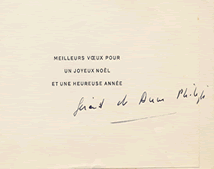 MEILLEURS VŒUX POUR
UN JOYEUX NOËL
ET UNE HEUREUSE ANNÉE
Gérard et Anne Philipe